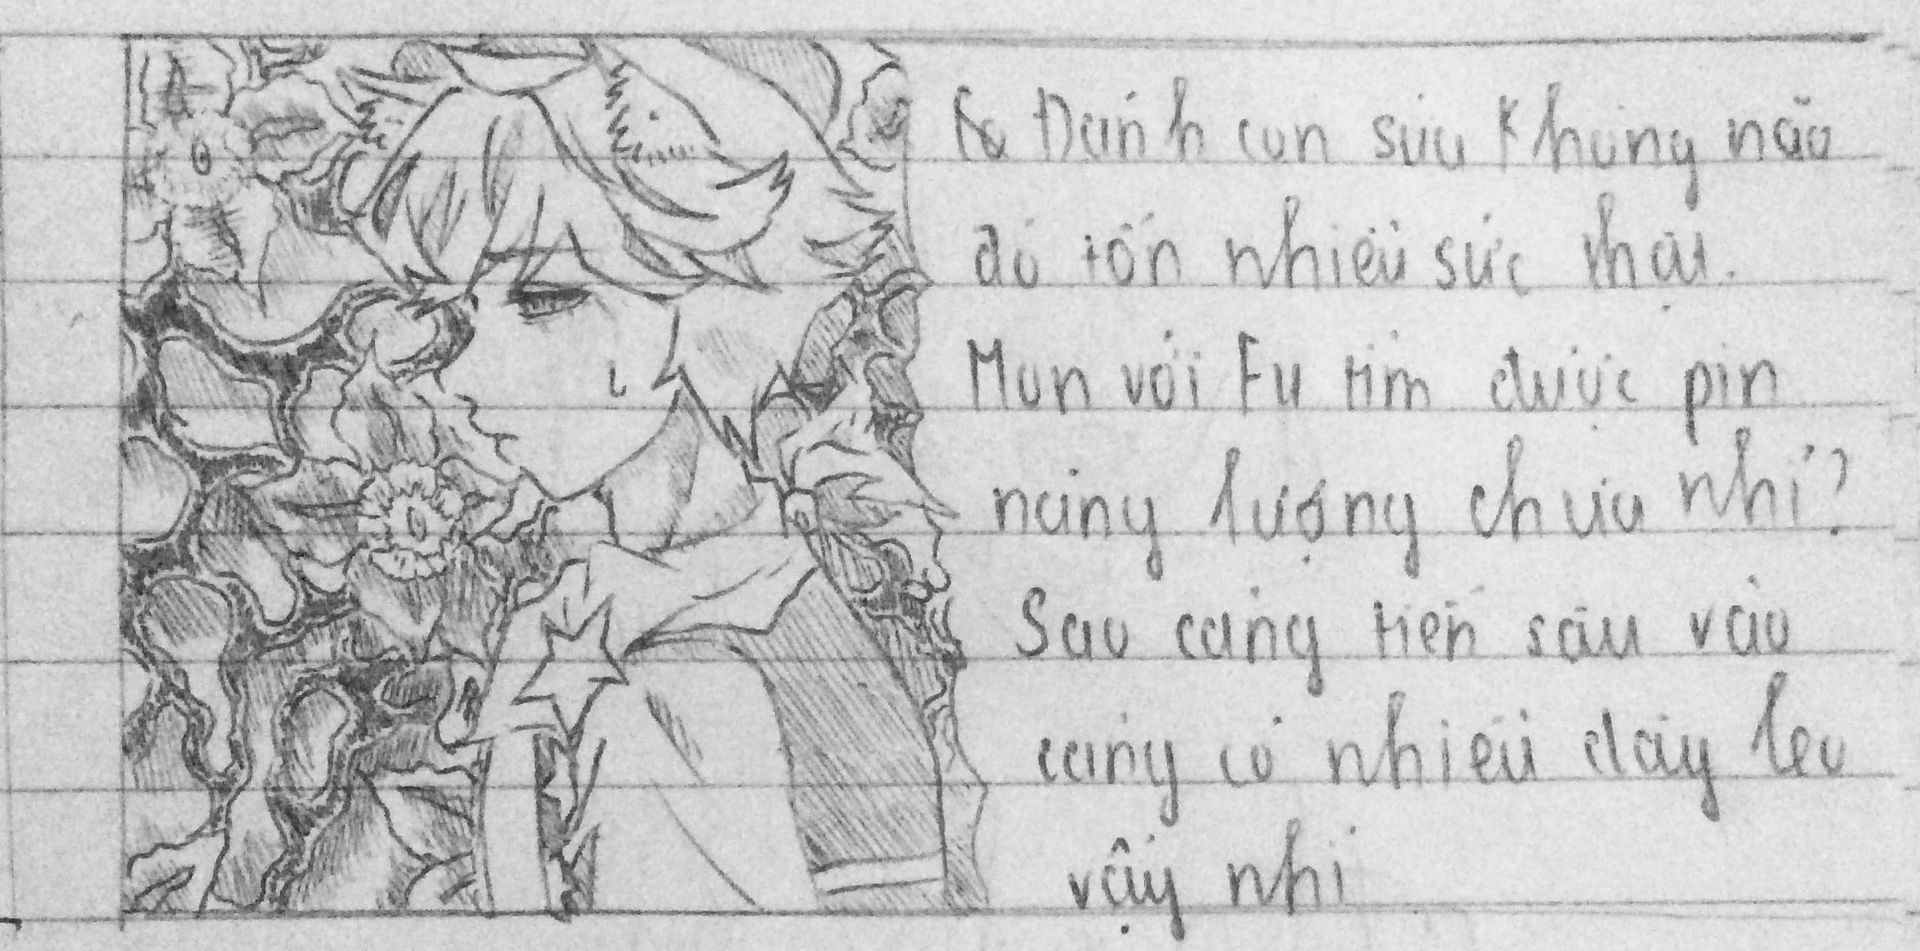 Đánh con sứa khổng não
đó tốn nhiều sức thật.
Mon với Fu tìm được pin
năng lượng chưa nhỉ?
Sao càng tiến sâu vào
càng có nhiều dây leo
vậy nhỉ